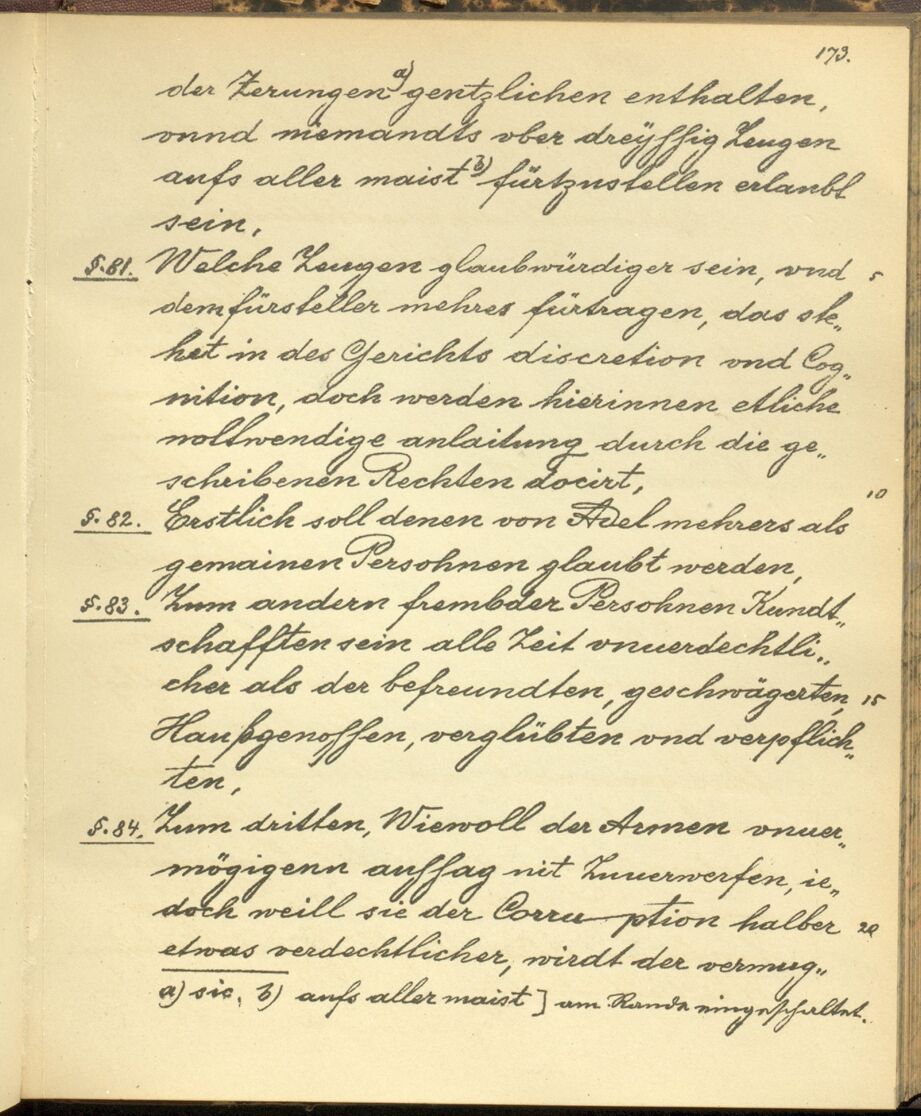 173.
der Zerungen a) gentzlichen enthalten,
vnnd niemandts vber dreyssig Zeugen
aufs aller maist b) fürtzustellen erlaubt
sein,
§.81. Welche Zeugen glaubwürdiger sein, vnd 5
dem fürsteller mehres fürtragen, das ste„
het in des Gerichts discretion vnd Cog„
nition, doch werden hierinnen etliche
nottwendige anlaitung durch die ge„
schribenen Rechten docirt, 10
§.82. Erstlich soll denen von Adel mehrers als
gemainen Persohnen glaubt werden,
§.83. Zum andern frembder Persohnen Kundt„
schafften sein alle Zeit vnuerdechtli„
cher als der befreundten, geschwägerten, 15
Haußgenossen, verglübten vnd verpflich„
ten,
§.84. Zum dritten, Wiewoll der Armen vnuer„
mögigenn aussag nit Zuuerwerfen, ie„
doch weill sie der Corru-ption halber 20
etwas verdechtlicher, wirdt der vermug„
a) sic, b) aufs aller maist] am Rande eingeschaltet.